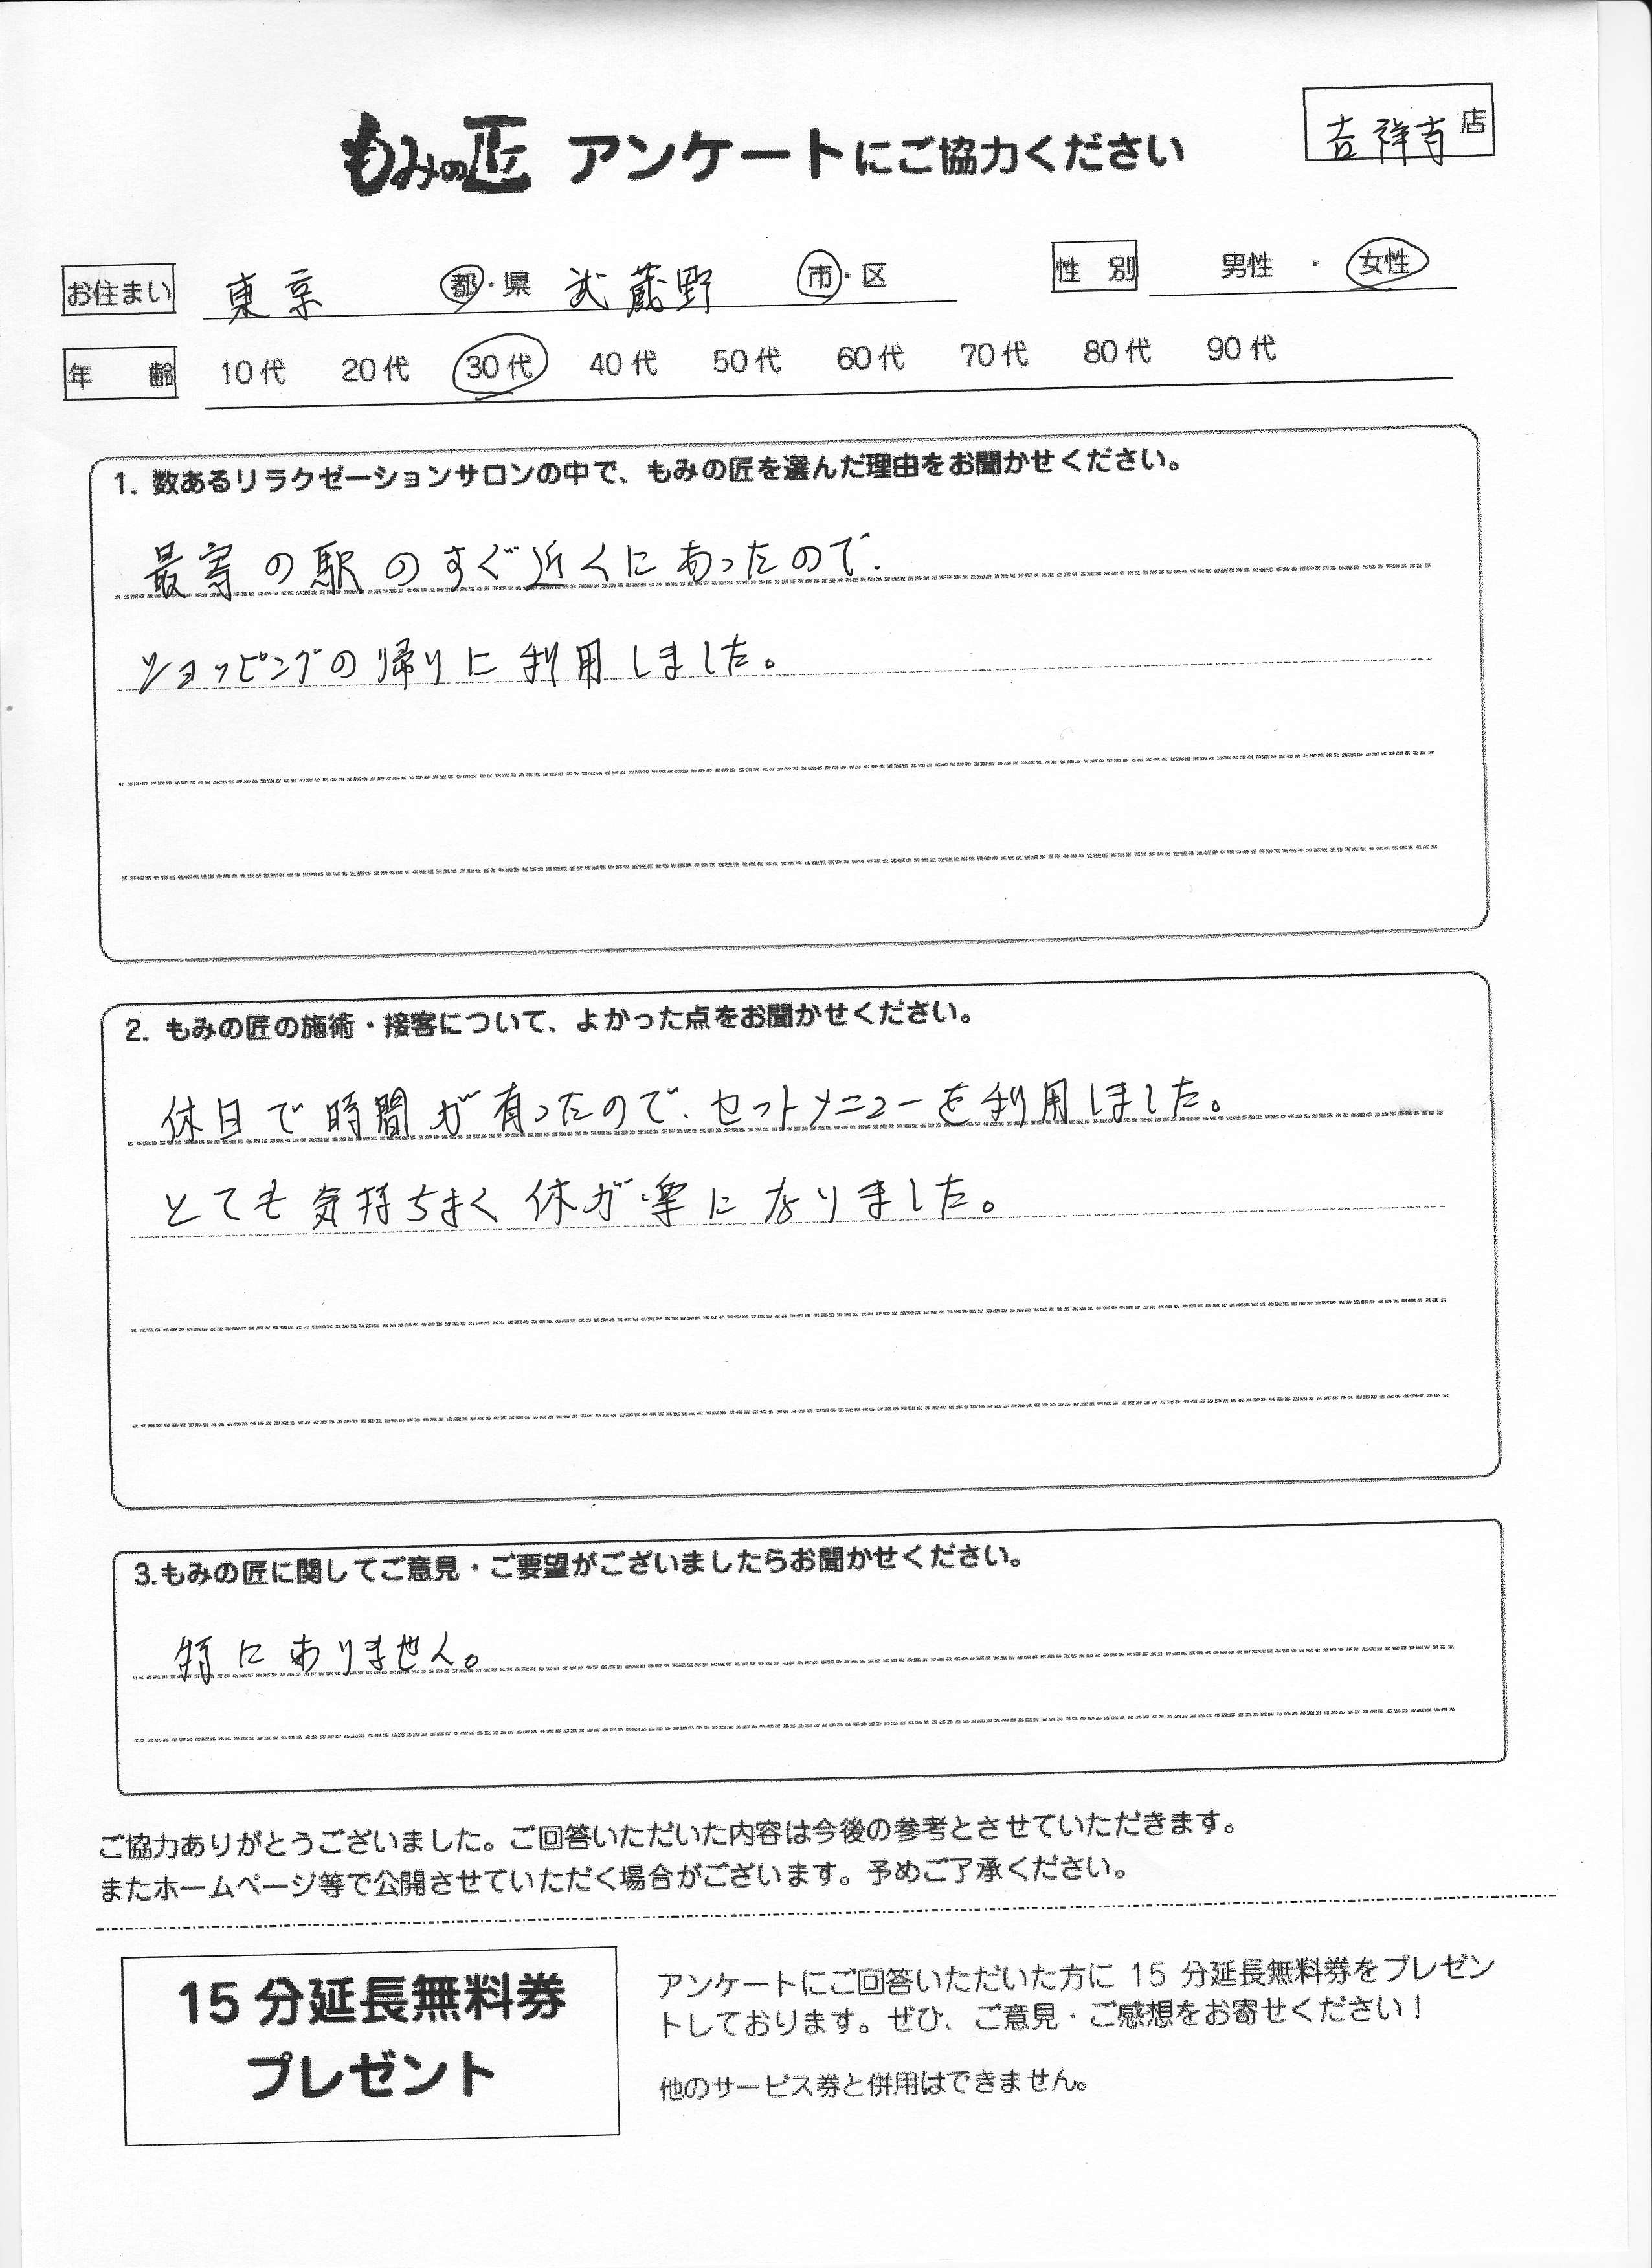 もみの匠 アンケートにご協力ください
吉祥寺 店
お住まい 東京 都・県 武蔵野 市・区 性別 男性 ・ 女性
年齢 10代 20代 30代 40代 50代 60代 70代 80代 90代
1. 数あるリラクゼーションサロンの中で、もみの匠を選んだ理由をお聞かせください。
最寄の駅のすぐ近くにあったので、
ショッピングの帰りに利用しました。
2. もみの匠の施術・接客について、よかった点をお聞かせください。
休日で時間が有ったので、セットメニューを利用しました。
とても気持ちよく体が楽になりました。
3.もみの匠に関してご意見・ご要望がございましたらお聞かせください。
特にありません。
ご協力ありがとうございました。ご回答いただいた内容は今後の参考とさせていただきます。
またホームページ等で公開させていただく場合がございます。予めご了承ください。
15分延長無料券
プレゼント
アンケートにご回答いただいた方に 15 分延長無料券をプレゼン
トしております。ぜひ、ご意見・ご感想をお寄せください！
他のサービス券と併用はできません。